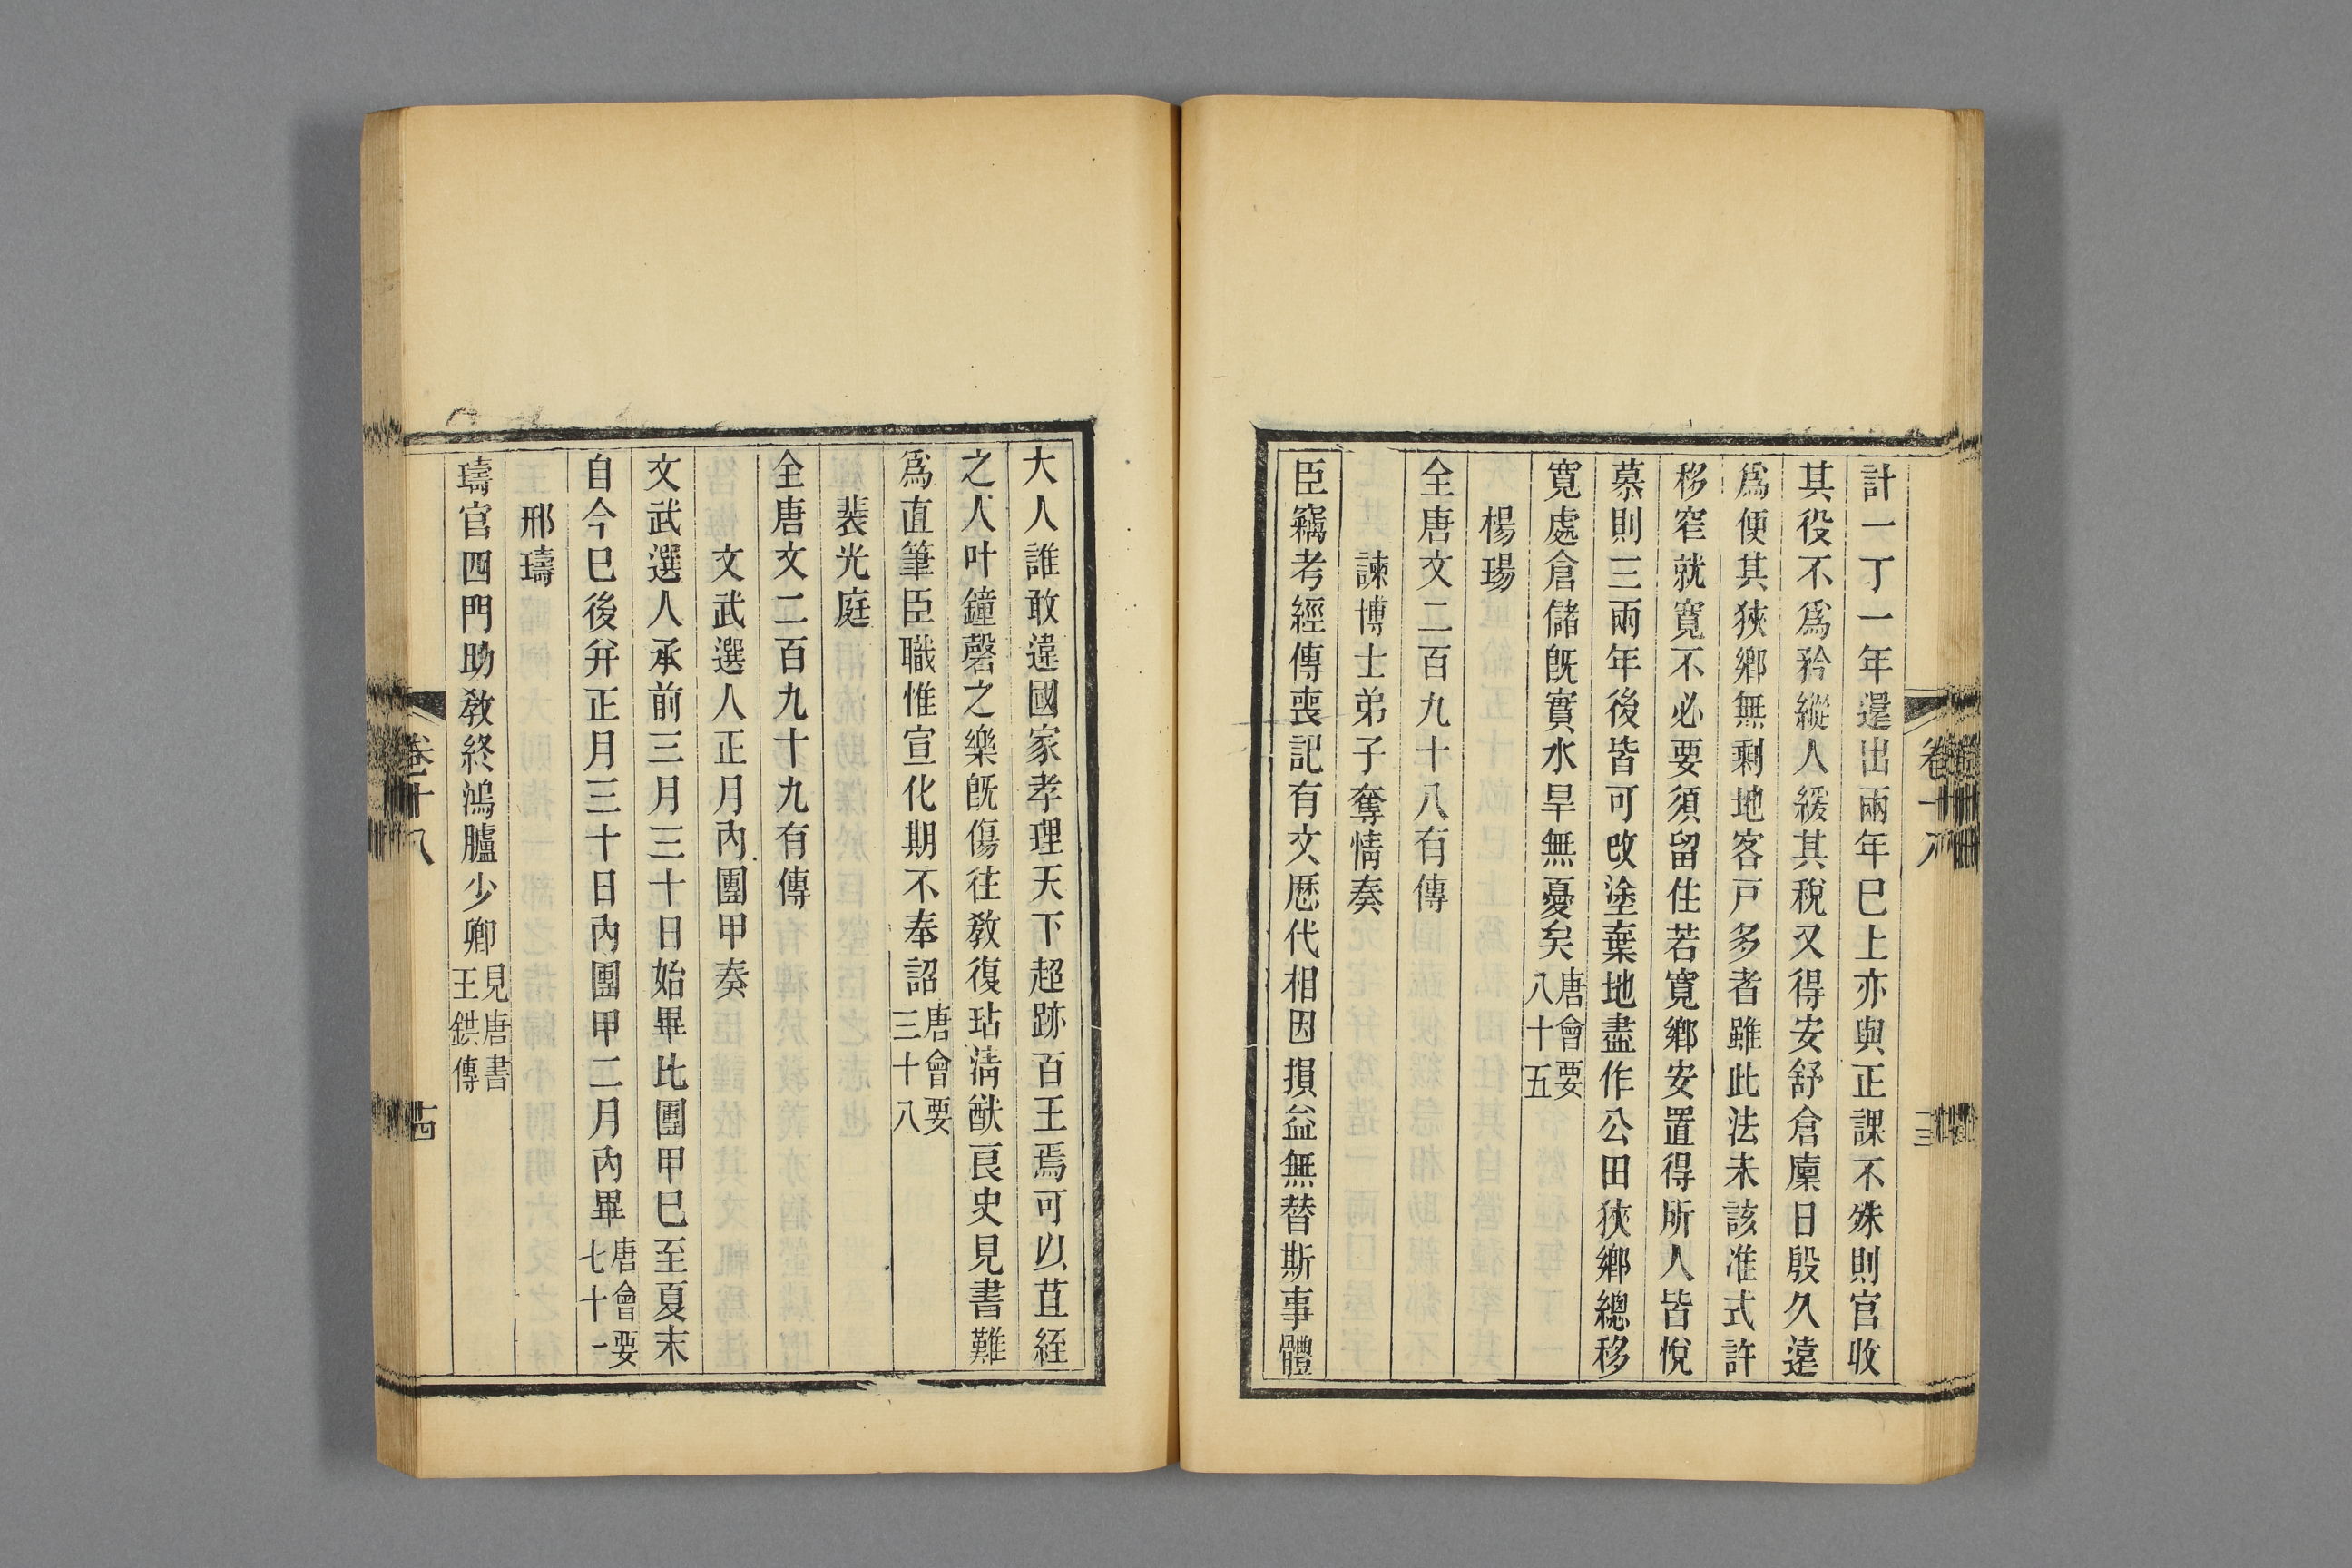 計一丁一年還出兩年巳上亦與正課不殊則官收
其役不爲矜縱人緩其稅又得安舒倉廩日殷久遠
爲便其狹鄉無剩地客戸多者雖此法未該准式許
移窄就寛不必要須留住若寛鄉安置得所人皆悅
慕則三兩年後皆可改塗棄地盡作公田狹鄉總移
寛處倉儲旣實水旱無憂矣唐會要八十五
楊瑒
全唐文二百九十八有傳
諫博士弟子奪情奏
臣竊考經傳喪記有文歷代相因損益無替斯事體
大人誰敢違國家孝理天下超跡百王焉可以苴絰
之人叶鐘磬之樂旣傷往敎復玷淸猷良史見書難
爲直筆臣職惟宣化期不奉詔唐會要三十八
裴光庭
全唐文二百九十九有傳
文武選人正月內團甲奏
文武選人承前三月三十日始畢比團甲巳至夏末
自今巳後并正月三十日內團甲二月內畢唐會要七十一
邢璹
璹官四門助敎終鴻臚少卿見唐書王鉷傳
卷十八
十四